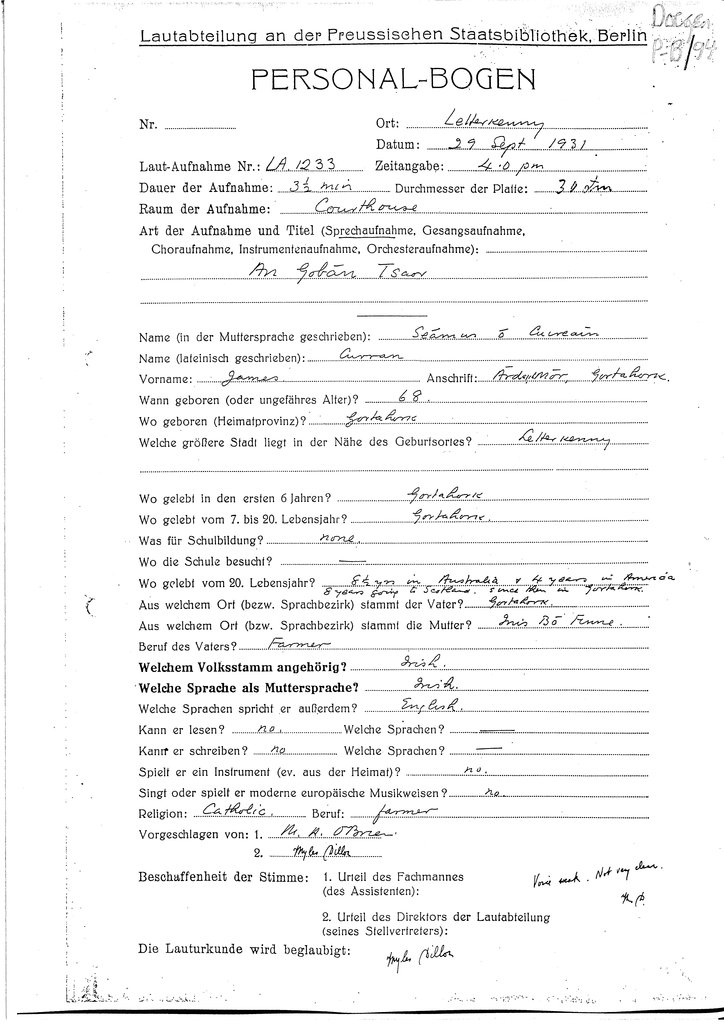 Doegen
P-B/94
Lautabteilung an der Preussischen Staatsbibliothek, Berlin
PERSONAL-BOGEN
Nr.
Ort: Letterkenny
Datum: 29 Sept 1931
Laut-Aufnahme Nr.: LA. 1233 Zeitangabe: 4.0 pm
Dauer der Aufnahme: 3½ min Durchmesser der Platte: 30 cm
Raum der Aufnahme: Courthouse
Art der Aufnahme und Titel (Sprechaufnahme, Gesangsaufnahme,
Choraufnahme, Instrumentenaufnahme, Orchesteraufnahme):
An Gobán Tsaor
Name (in der Muttersprache geschrieben): Seāmus ō Cuireain
Name (lateinisch geschrieben): Curran
Vorname: James Anschrift: Gortahork.
Wann geboren (oder ungefähres Alter)? 68.
Wo geboren (Heimatprovinz)? Gortahork
Welche größere Stadt liegt in der Nähe des Geburtsortes? Letterkenny
Wo gelebt in den ersten 6 Jahren? Gortahork
Wo gelebt vom 7. bis 20. Lebensjahr? Gortahork.
Was für Schulbildung? none.
Wo die Schule besucht? —
Wo gelebt vom 20. Lebensjahr? 8½ yrs in Australia & 4 years in America
8 years going to Scotland. since then in Gortahork.
Aus welchem Ort (bezw. Sprachbezirk) stammt der Vater? Gortahork.
Aus welchem Ort (bezw. Sprachbezirk) stammt die Mutter? Inis Bō Finne.
Beruf des Vaters? Farmer
Welchem Volksstamm angehörig? Irish.
Welche Sprache als Muttersprache? Irish.
Welche Sprachen spricht er außerdem? English.
Kann er lesen? no. Welche Sprachen? —
Kann er schreiben? no Welche Sprachen? —
Spielt er ein Instrument (ev. aus der Heimat)? no.
Singt oder spielt er moderne europäische Musikweisen? no.
Religion: Catholic. Beruf: farmer
Vorgeschlagen von: 1. M. A. O'Brien.
2. Myles Dillon
Beschaffenheit der Stimme: 1. Urteil des Fachmannes
(des Assistenten):
Voice weak. Not very clear.
M. D.
2. Urteil des Direktors der Lautabteilung
(seines Stellvertreters):
Die Lauturkunde wird beglaubigt: Myles Dillon